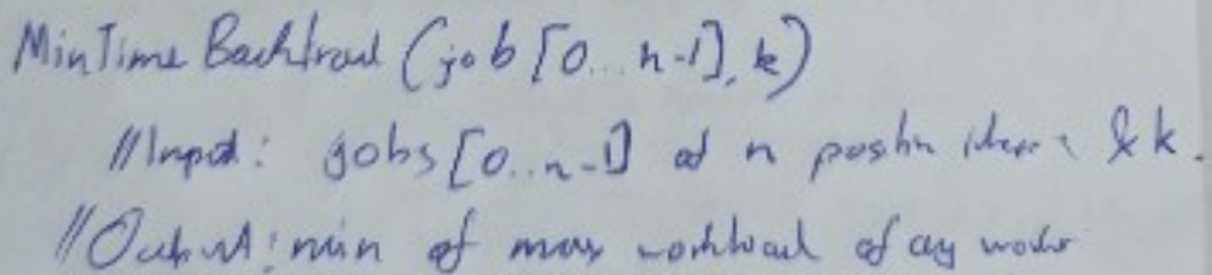 MinTime Backtrack (job [0...n-1], k)
//Input: jobs [0..n-1] of n positive & k.
//Output: min of max workload of any worker